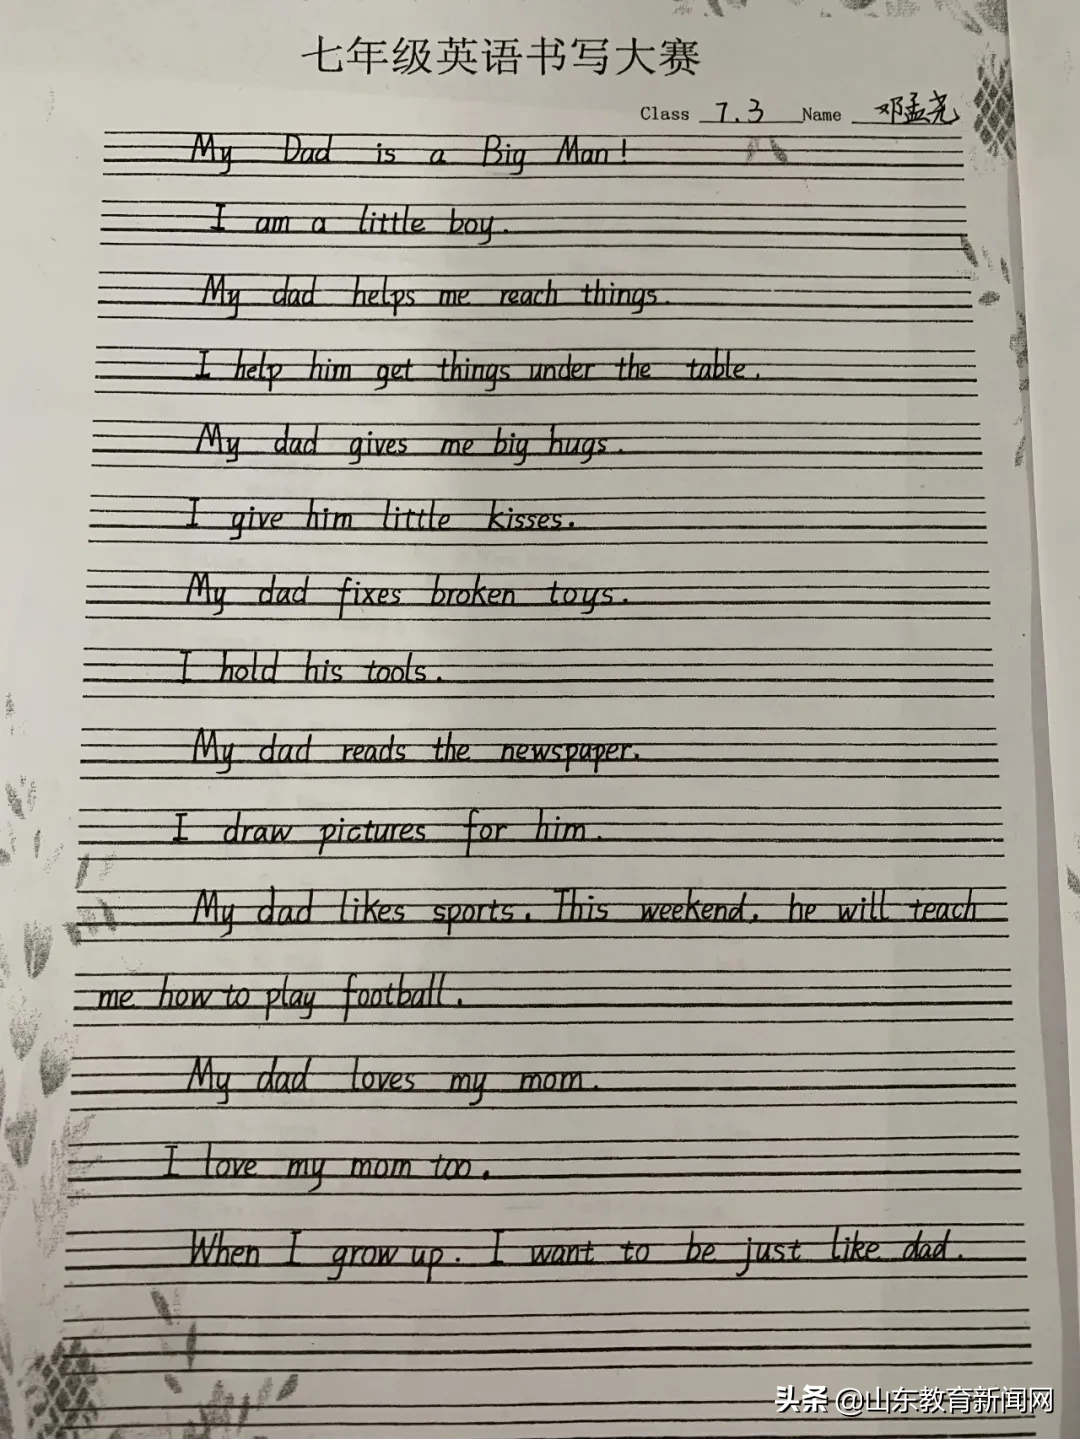 七年级英语书写大赛
Class 7.3 Name 邓孟尧
My Dad is a Big Man!
I am a little boy.
My dad helps me reach things.
I help him get things under the table.
My dad gives me big hugs.
I give him little kisses.
My dad fixes broken toys.
I hold his tools.
My dad reads the newspaper.
I draw pictures for him.
My dad likes sports. This weekend, he will teach
me how to play football.
My dad loves my mom.
I love my mom too.
When I grow up. I want to be just like dad.
头条 @山东教育新闻网